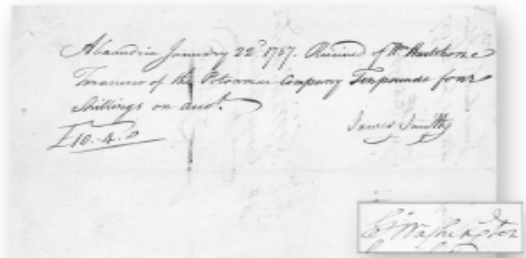 Alexandria January 22d. 1787. Received of Wm Hartshorne
Treasurer of the Potomac Company Ten pounds four
Shillings on acct.
£10.4.0
James Smith
Go Washington